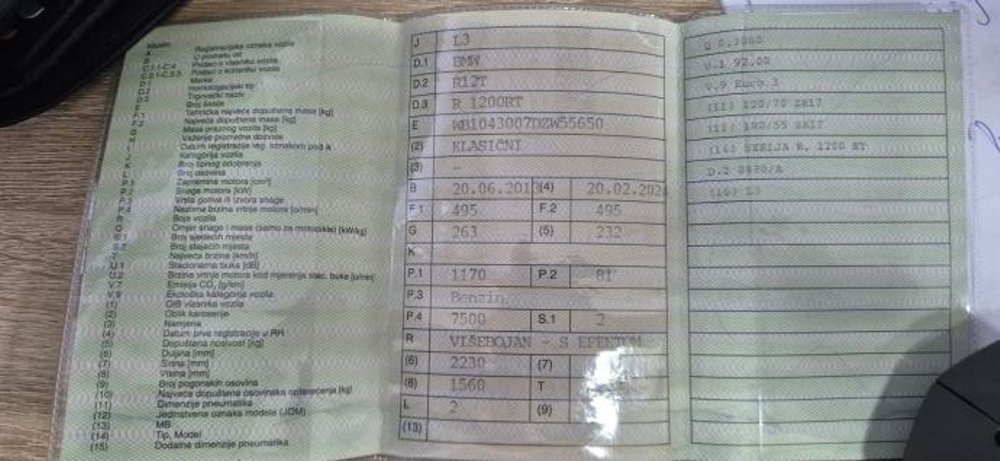 Registracijska oznaka vozila
Podaci o vlasniku vozila
Podaci o korisniku vozila
Marka
Homologacijski tip
Trgovački naziv
Broj šasije
Tehnička najveća dopuštena masa [kg]
Najveća dopuštena masa [kg]
Masa praznog vozila [kg]
Važenje prometne dozvole
Datum registracije reg. oznakom pod A
Kategorija vozila
Broj tipnog odobrenja
Broj osovina
P.1 Zapremina motora [cm³]
P.2 Snaga motora [kW]
P.3 Vrsta goriva ili izvora snage
P.4 Nazivna brzina vrtnje motora [o/min]
R Boja vozila
Q Omjer snage i mase (samo za motocikle) [kW/kg]
S.1 Broj sjedećih mjesta
S.2 Broj stajaćih mjesta
T Najveća brzina [km/h]
U.1 Stacionarna buka [dB]
U.2 Brzina vrtnje motora kod mjerenja stac. buke [o/min]
V.7 Emisija CO₂ [g/km]
V.9 Ekološka kategorija vozila
(1) OIB vlasnika vozila
(2) Oblik karoserije
(3) Namjena
(4) Datum prve registracije u RH
(5) Dopuštena nosivost [kg]
(6) Duljina [mm]
(7) Širina [mm]
(8) Visina [mm]
(9) Broj pogonskih osovina
(10) Najveća dopuštena osovinska opterećenja [kg]
(11) Dimenzije pneumatika
(12) Jedinstvena oznaka modela (JOM)
(13) MB
(14) Tip, Model
(15) Dodatne dimenzije pneumatika
J L3
D.1 BMW
D.2 R12T
D.3 R 1200RT
E WB1043007DZW55650
(2) KLASIČNI
(3) -
B 20.06.2013 (4) 20.02.202
F.1 495 F.2 495
G 263 (5) 232
K
P.1 1170 P.2 81
P.3 Benzin
P.4 7500 S.1 2
R VIŠEBOJAN - S EFEKTOM
(6) 2230 (7)
(8) 1560 T
L 2 (9)
(13)
U.1 92.00
V.9 Euro 3
(11) 120/70 ZR17
(11) 180/55 ZR17
(14) SERIJA R, 1200 RT
D.2 0430/A